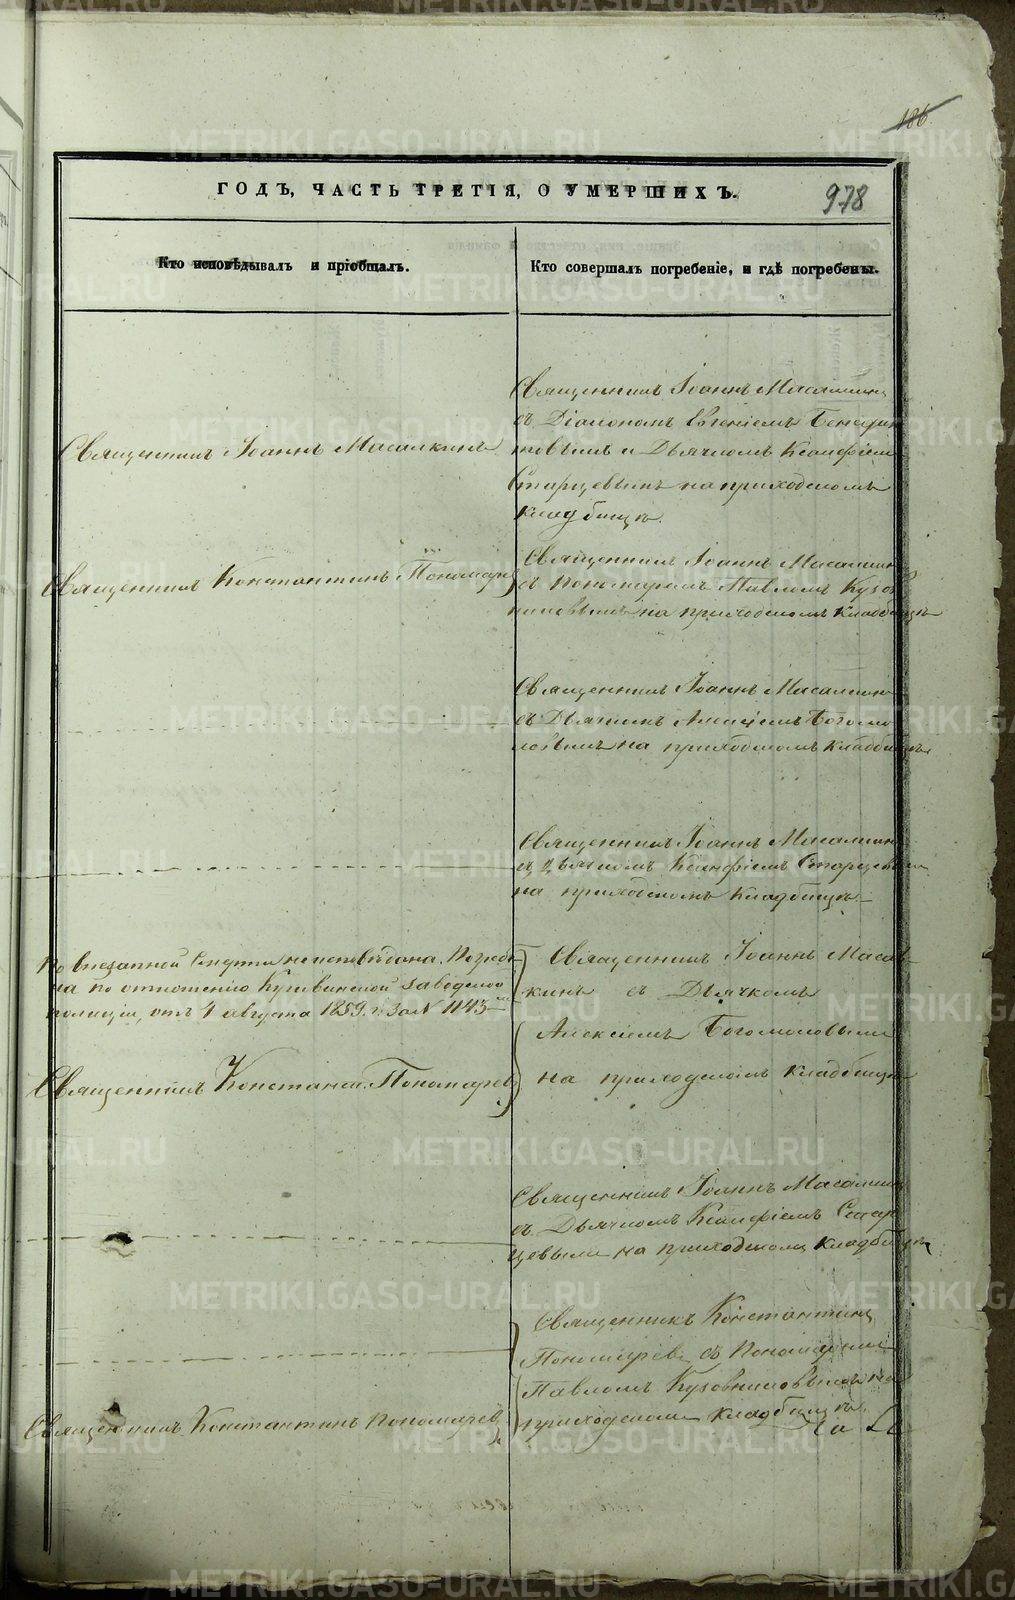 186
978
ГОДЪ, ЧАСТЬ ТРЕТІЯ, О УМЕРШИХЪ.
Кто исповѣдывалъ и пріобщалъ.
Кто совершалъ погребеніе, и гдѣ погребены.
Священникъ Іоаннъ Масалкинъ
Священникъ Іоаннъ Масалкинъ
съ Діакономъ Евгеніемъ
и Дьячкомъ Ксанфіем
Старцевымъ на приходскомъ
кладбищѣ.
Священникъ Константинъ Пономарев
Священникъ Іоаннъ Масалкин
съ Пономаремъ Павломъ Кузов
никовымъ на приходскомъ кладбищѣ
Священникъ Іоаннъ Масалкин
съ Дьячкомъ Алексіемъ Богомо
ловымъ на приходскомъ кладбищѣ
Священникъ Іоаннъ Масалкин
съ Дьячкомъ Ксанфіемъ Старцевым
на приходскомъ кладбищѣ
По внезапной смерти не исповѣдана. Погребе
на по отношенію Кушвинской заводской
полиціи, отъ 4 августа 1859 г. за № 1143
Священникъ Іоаннъ Масал
кинъ съ Дьячкомъ
Алексіемъ Богомоловымъ
на приходскомъ кладбищѣ
Священникъ Констант. Пономаревъ
Священникъ Іоаннъ Масалкин
съ Дьячкомъ Ксанфіемъ Стар
цевымъ на приходскомъ кладбищѣ
Священникъ Константинъ
Пономаревъ съ Пономаремъ
Павломъ Кузовниковымъ на
приходскомъ кладбищѣ.
Священникъ Константинъ Пономарев
METRIKI.GASO-URAL.RU